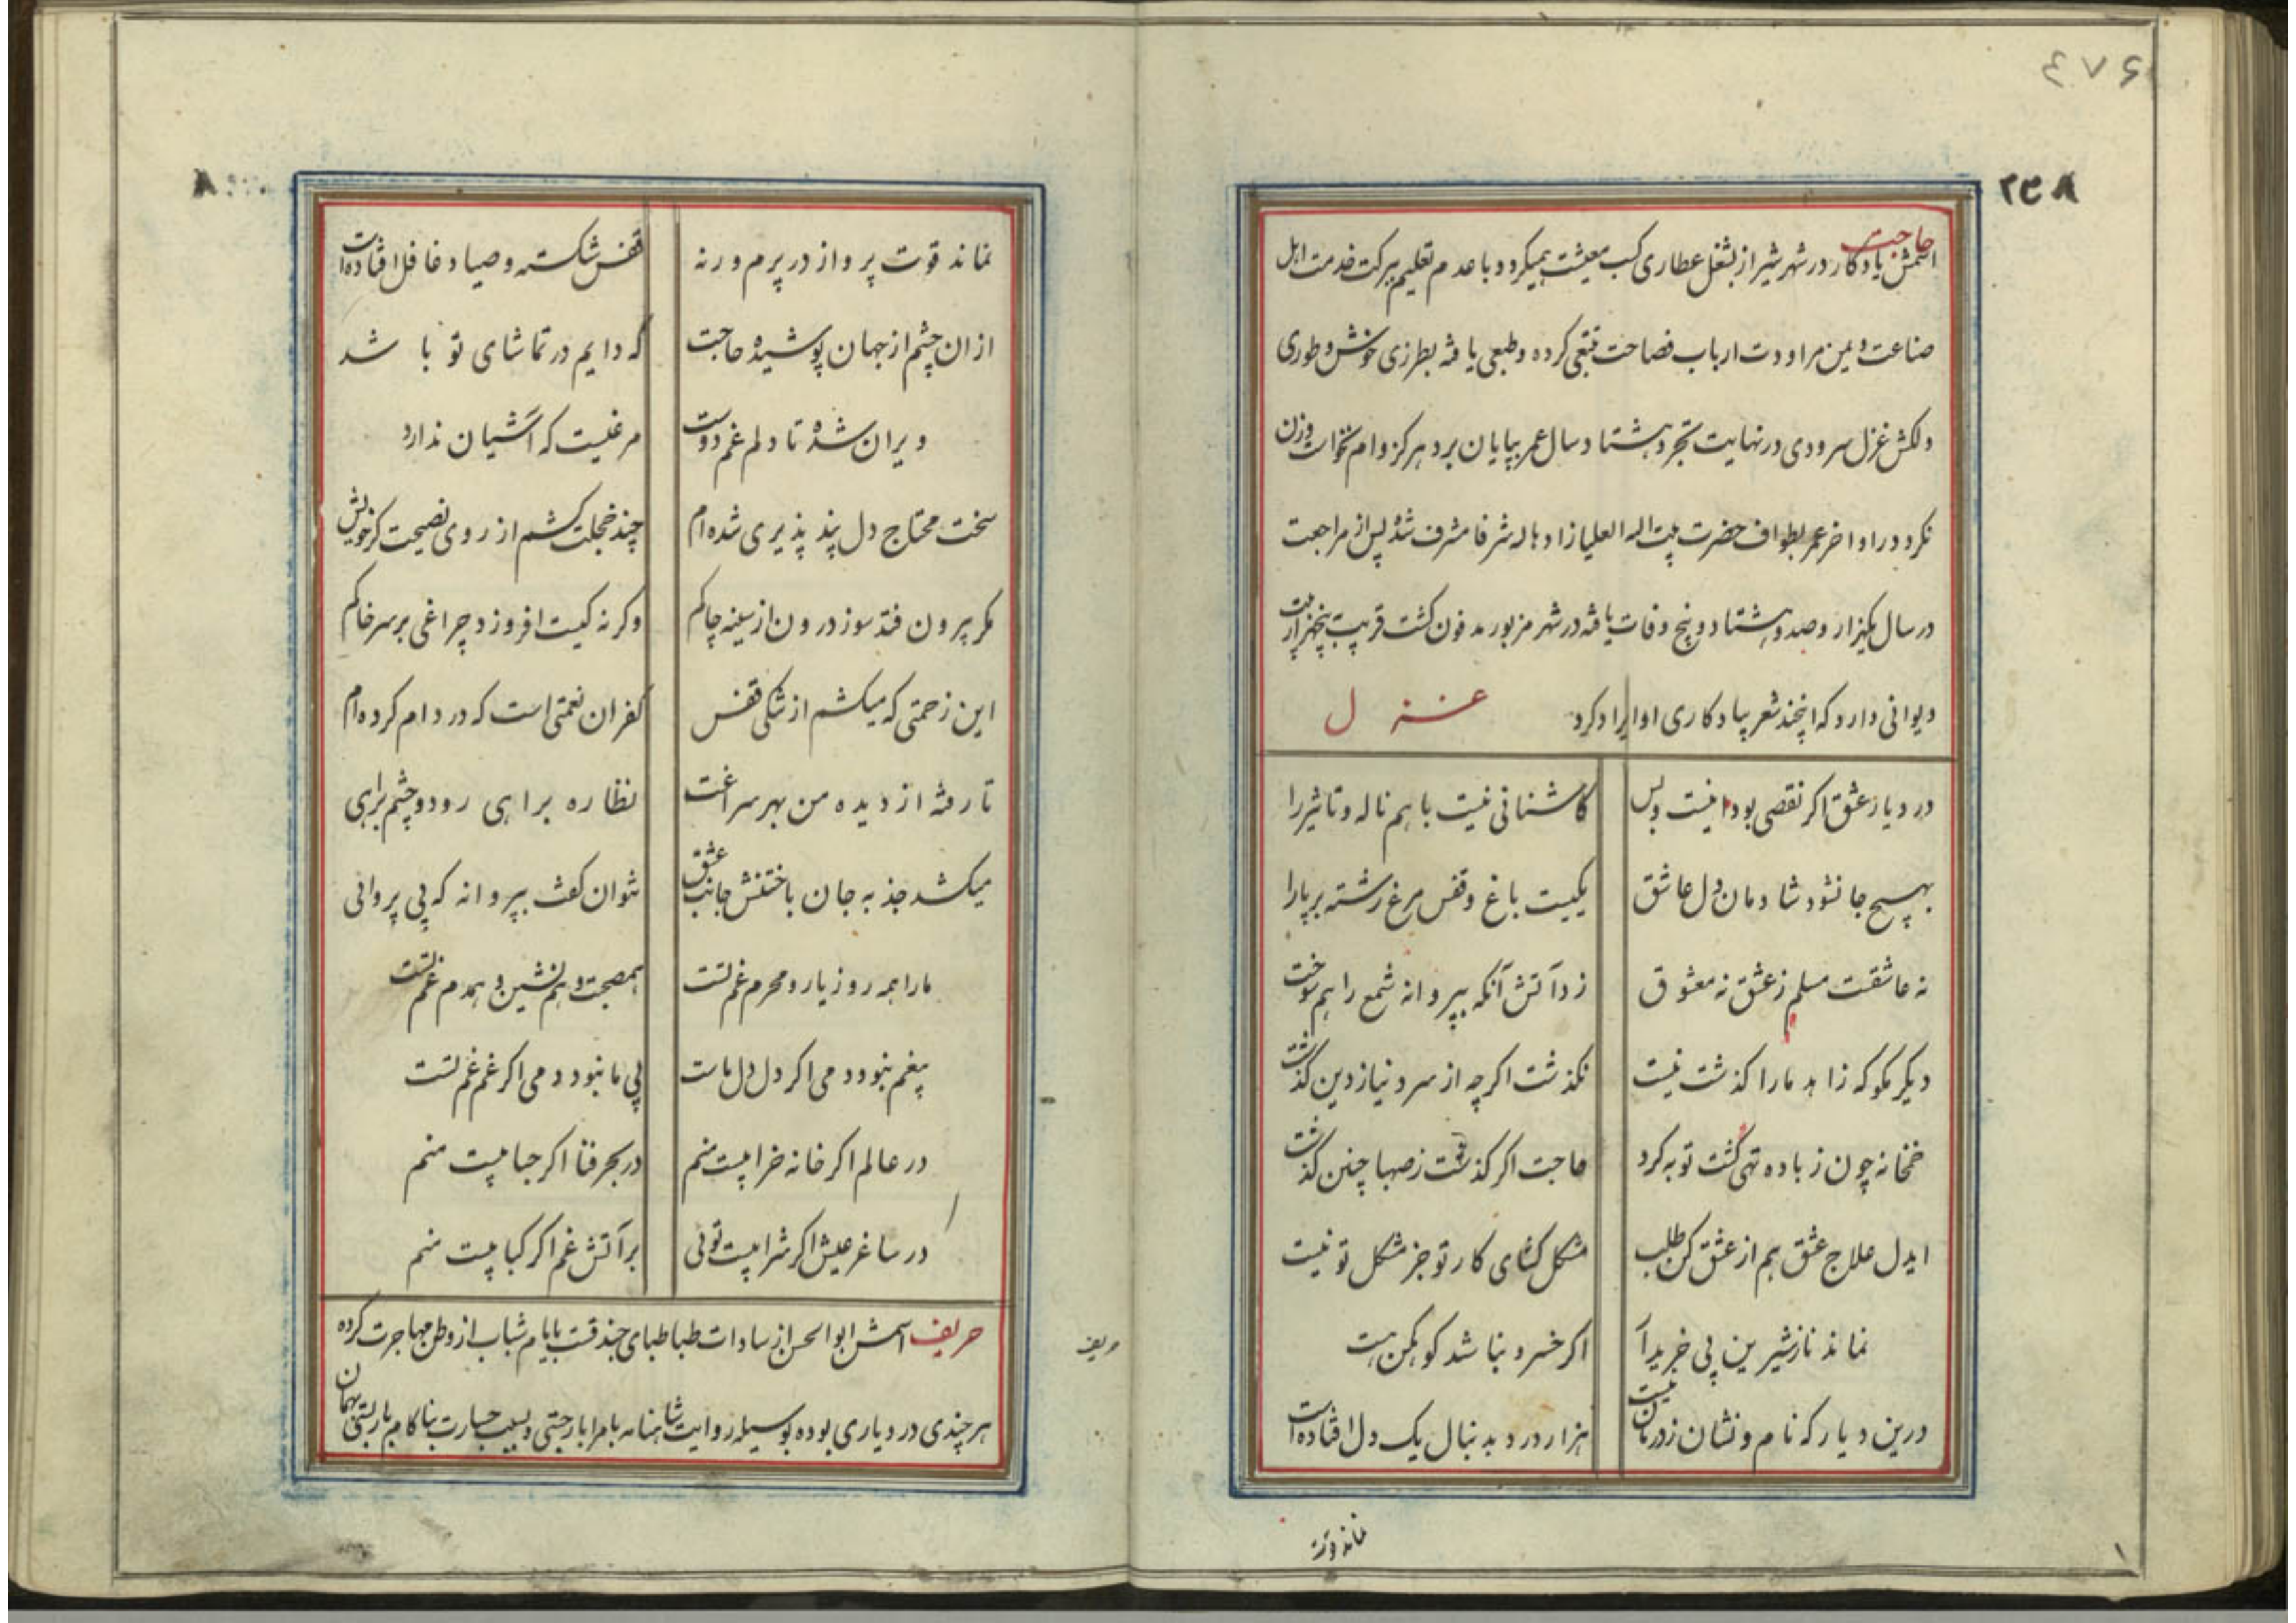 ۴۷۶
۲۳۸
حاجت
اسمش یادکار در شهر شیراز بشغل عطاری کسب معیشت میکرد و با عدم تعلیم ببرکت خدمت اهل
صناعت و یمن مراودت ارباب فصاحت تتبعی کرده و طبعی یافته بطرزی خوش و طوری
دلکش غزل سرودی در نهایت تجرد هشتاد سال عمر بپایان برد هرکز وام نخواست و زن
نکرد در اواخر عمر بطواف حضرت بیت اله العلیا زادها له شرفا مشرف شده پس از مراجعت
در سال یکهزار و صد و هشتاد و پنج وفات یافته در شهر مزبور مدفون کشت قریب بپنجهزار بیت
دیوانی دارد که اینچند شعر بیادکاری او ایراد کرد
غزل
در دیار عشق اکر نقصی بود اینست و بس کاشنائی نیست با هم ناله و تاثیر را
بهیچ جا نشود شادمان دل عاشق یکیست باغ و قفس مرغ رشته بر پا را
نه عاشقست مسلم ز عشق نه معشوق زد آتش آنکه بپروانه شمع را هم سوخت
دیکر مکو که زاهد ما را کذشت نیست نکذشت اکرچه از سر دنیا ز دین کذشت
خمخانه چون ز باده تهی کشت توبه کرد حاجت اکر کذشت ز صهبا چنین کذشت
ایدل علاج عشق هم از عشق کن طلب مشکل کشای کار تو جز مشکل تو نیست
نماند ناز شیرین بی خریدار اکر خسرو نباشد کوهکن هست
درین دیار که نام و نشان ز درمان نیست هزار درد بدنبال یک دل افتاده است
نماند قوت
نماند قوت پرواز در پرم ورنه قفس شکسته و صیاد غافل افتاده است
از ان چشم از جهان پوشیده حاجت که دایم در تماشای تو باشد
ویران شده تا دلم غم دوست مرغیست که آشیان ندارد
سخت محتاج دل پند پذیری شده ام چند خجلت کشم از روی نصیحت کر خویش
مکر بیرون فتد سوز درون از سینه چاکم وکرنه کیست افروزد چراغی بر سر خاکم
این زحمتی که میکشم از تنکی قفس کفران نعمتی است که در دام کرده ام
تا رفته از دیده من بهر سراغت نظاره براهی رود و چشم براهی
میکشد جذبه جان باختنش جانب عشق نتوان کفت بپروانه که بی پروائی
ما را همه روز یار و محرم غم تست همصحبت و هم نشین و همدم غم تست
بیغم نبود دمی اکر دل دل ماست بی ما نبود دمی اکر غم غم تست
در عالم اکر خانه خرابیست منم در بحر فنا اکر حبابیست منم
در ساغر عیش اکر شرابیست توئی بر آتش غم اکر کبابیست منم
حریف اسمش ابوالحسن از سادات طباطبای جندقست بایام شباب از وطن مهاجرت کرده
هر چندی در دیاری بوده بوسیله روایت شاهنامه با مرا بار جستی و بسبب جسارت بناکام بار بستی